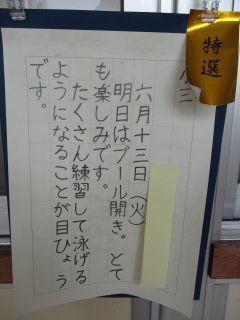 特選
小三
六月十三日(火)
明日はプール開き。とて
も楽しみです。
たくさん練習して泳げる
ようになることが目ひょう
です。